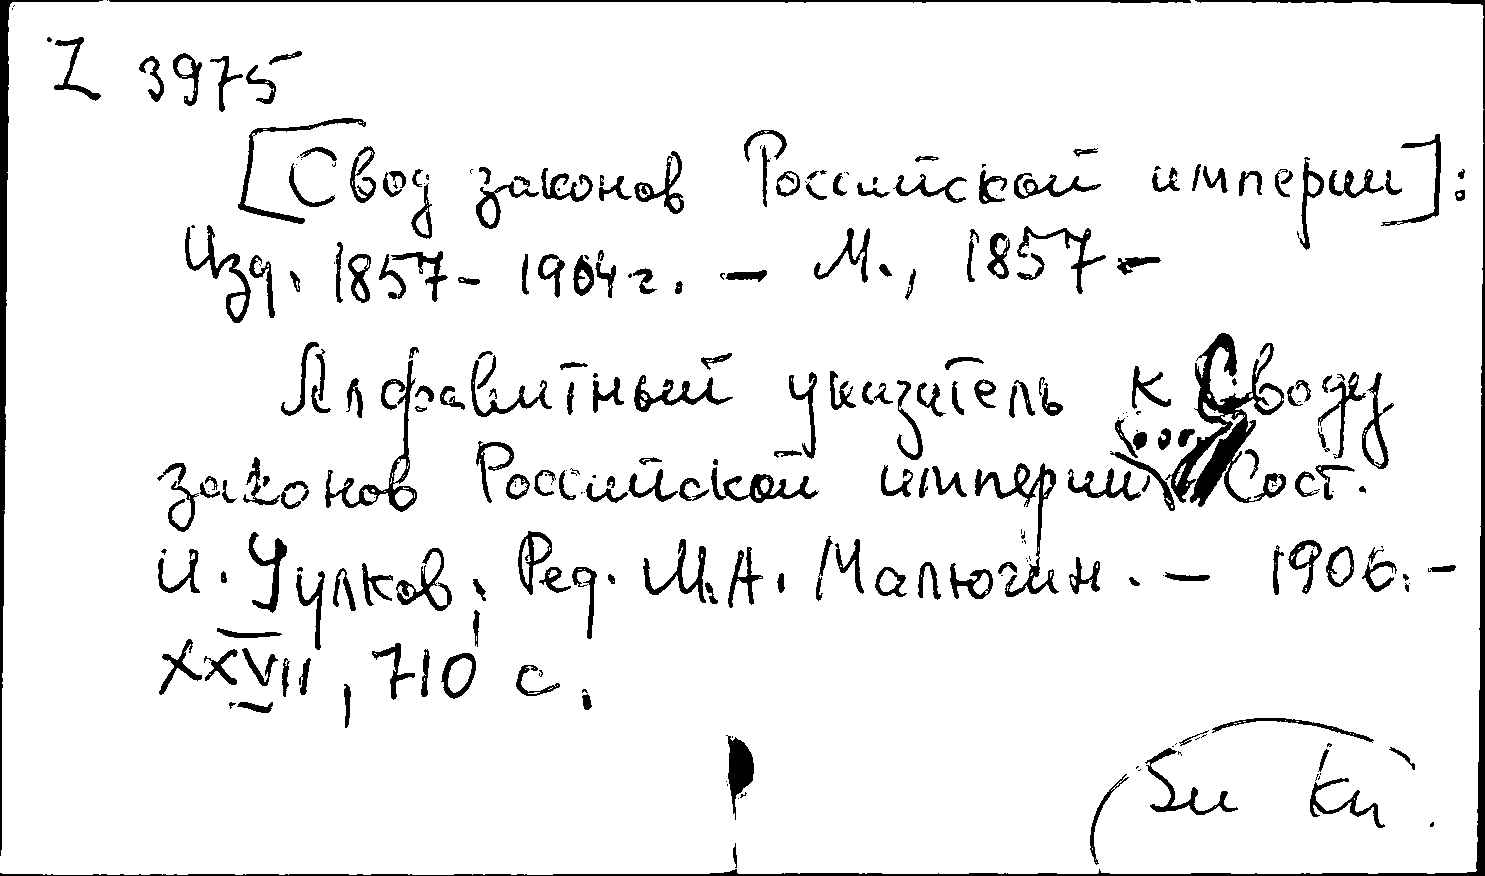 Z 3975
[Свод законов Российской империи]:
Изд. 1857- 1904 г. — М., 1857 -
Алфавитный указатель к Своду
законов Российской империи ... Сост.
И. Чулков; Ред. М.А. Малюгин. — 1906. -
XXVII, 710 с.